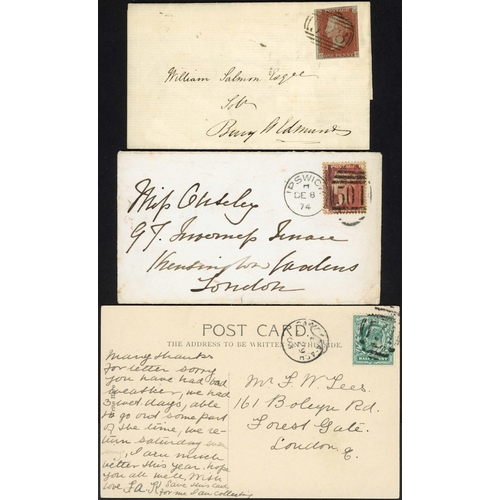 William Salmon Esqre
Solr
Bury St Edmunds
IPSWICH
DE 8
74
501
Miss
97. Inverness Terrace
Kensington Gardens
London
POST CARD.
THE ADDRESS TO BE WRITTEN ON THIS SIDE.
Many thanks
for letter sorry
you have had bad
weather, we had
3 wet days, able
to go out some part
of the time, we re-
turn Saturday
I am much
better this year. hope
you all well, With
love F.A.R Save this card
for me I am collecting
Mr F. W. Lees.
161 Boleyn Rd.
Forest Gate.
London, E.